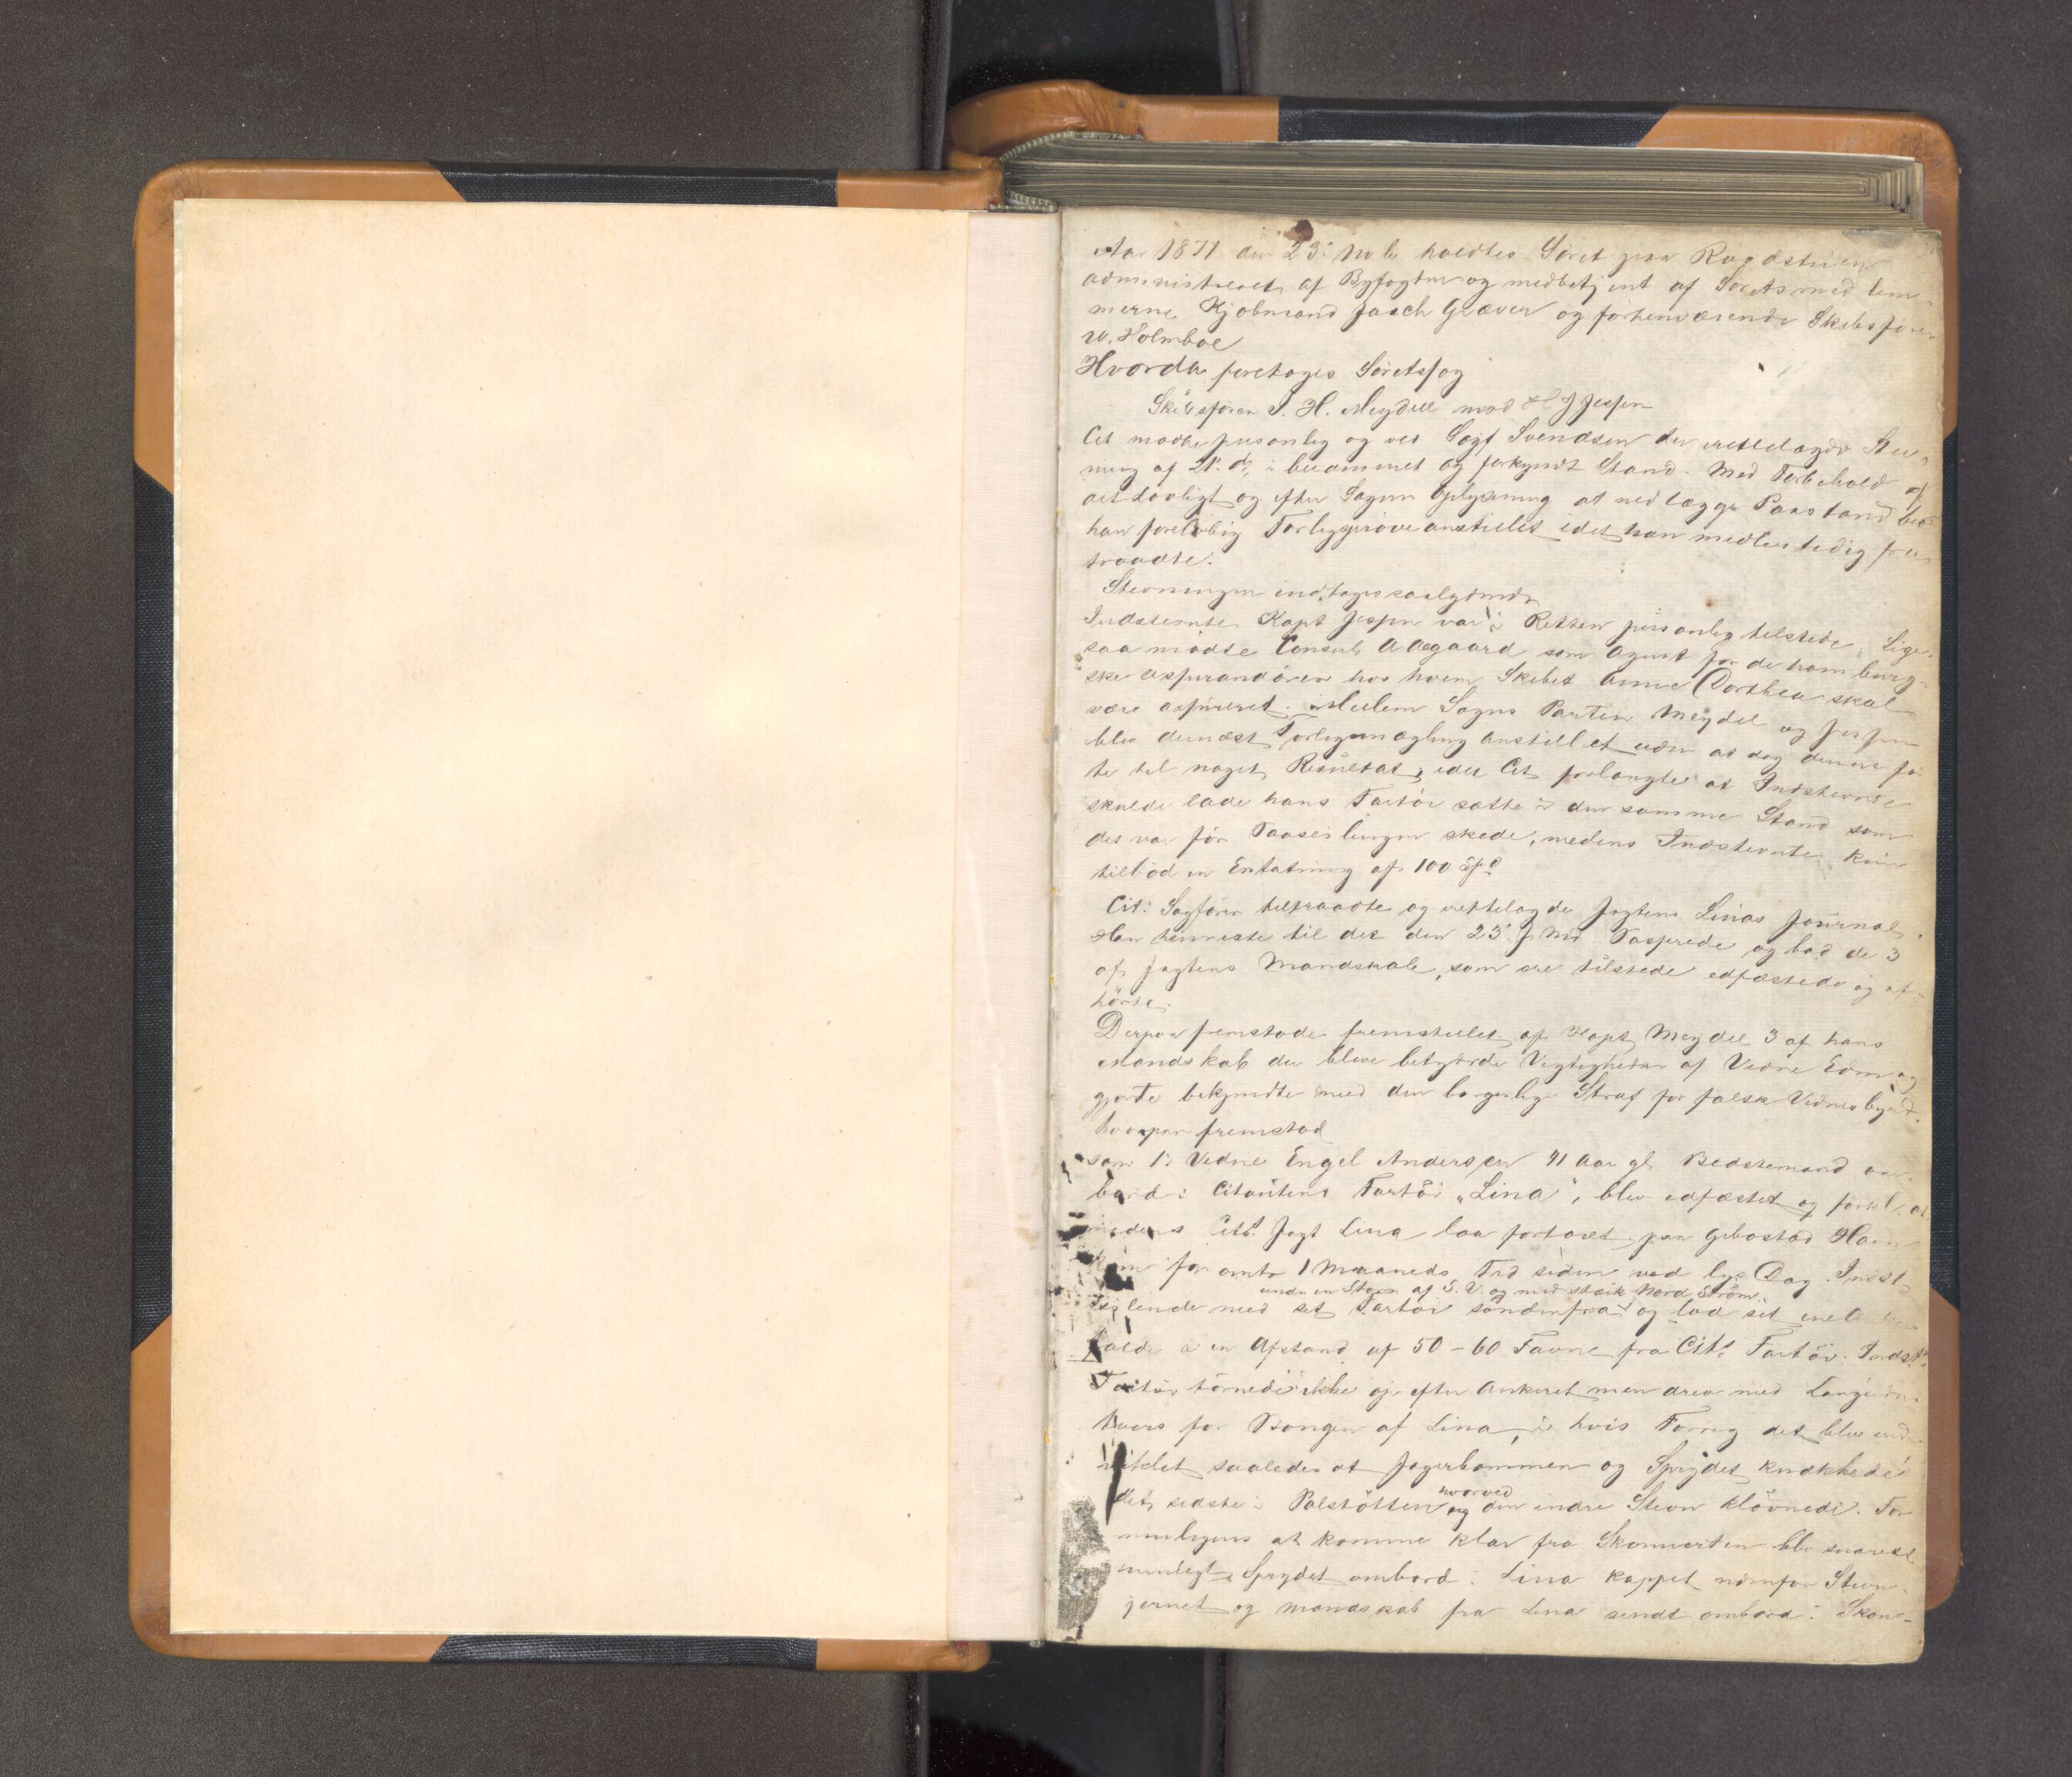 Aar 1871 den 23' Nvb. holdtes Søret paa Raadstuen
administreret af Byfogden og medbetjent af Sørets med lem-
merne Kjøbmand Jasch Græver og forhenværende Skibsfører
W. Holmboe
Hvorda foretoges Søretssag
Skibsfører I. H. Meydell mod H J Jespen
Cit mødte personlig og ved Sagf Svendsen der irettelagde Stev-
ning af 21' ds i beammet og forkyndt Stand. Med Forbehold af
alt lovligt og efter Sagens Oplysning at nedlægge Paastand bad
han foreløbig Forligsprøve anstillet idet han midlertidig fra
traadte.
Stevningen indtages saalydende
Indstevnte Kapt Jespen var i Retten personlig tilstede. Lige-
saa mødte Consul Aagaard som Agent for de hamburg-
ske assurandører hos hvem Skibet Anne Dorthea skal
være assureret. Mellem Sagens Parter Meydel og Jespen
blev dernæst Forligsmægling anstillet uden at dog denne før
te til noget Resultat, idet Cit forlangte at Indstevnte
skulde lade hans Fartøi sætte i den samme Stand som
det var før Paaseilingen skede, medens Indstevnte kun
tilbød en Erstatning af 100 Spd
Cit: Sagfører tiltraadte og rettelagde Jagtens Linas Journal.
Han henviste til det den 23' f. Md Passerede og bad de 3
af Jagtens Mandskab, som ere tilstede edfæstede og af-
hørte.
Derpaa fremstode fremstillet af Kapt Meydel 3 af hans
Mandskab der bleve betydede Vigtigheden af Vidne Eden og
gjorte bekjendte med den borgerlige Straf for falsk Vidnesbyrd.
hvorpaa fremstod
som 1' Vidne Engel Andersen 41 Aar gl. Bedstemand om-
bord i Citantens Fartøi „Lina", blev edfæstet og forkl. at
medens Citts Jagt Lina laa fortøiet paa Gibostad Havn
kom for omtr 1 Maaneds Tid siden ved lys Dag Indst
under en Storm af S.V. og med stærk Nord Strøm
seilende med sit Fartøi søndenfra og lod sit ene Anker
falde i en Afstand af 50 - 60 Favne fra Cits Fartøi. Indsts
Fartøi tørnede ikke op efter Ankeret men drev med Langsiden
tvers for Bougen af Lina, i hvis Forrig det blev ind-
viklet saaledes at Jagerbommen og Sprydet knækkede
det sidste i Palstøtten hvorved og den indre Stevn kløvnede. For
muligens at komme klar fra Skonnerten blev snarest
muligt Sprydet ombord i Lina kappet nedenfor Stevn-
jernet og Mandskab fra Lina sendt ombord i Skon-